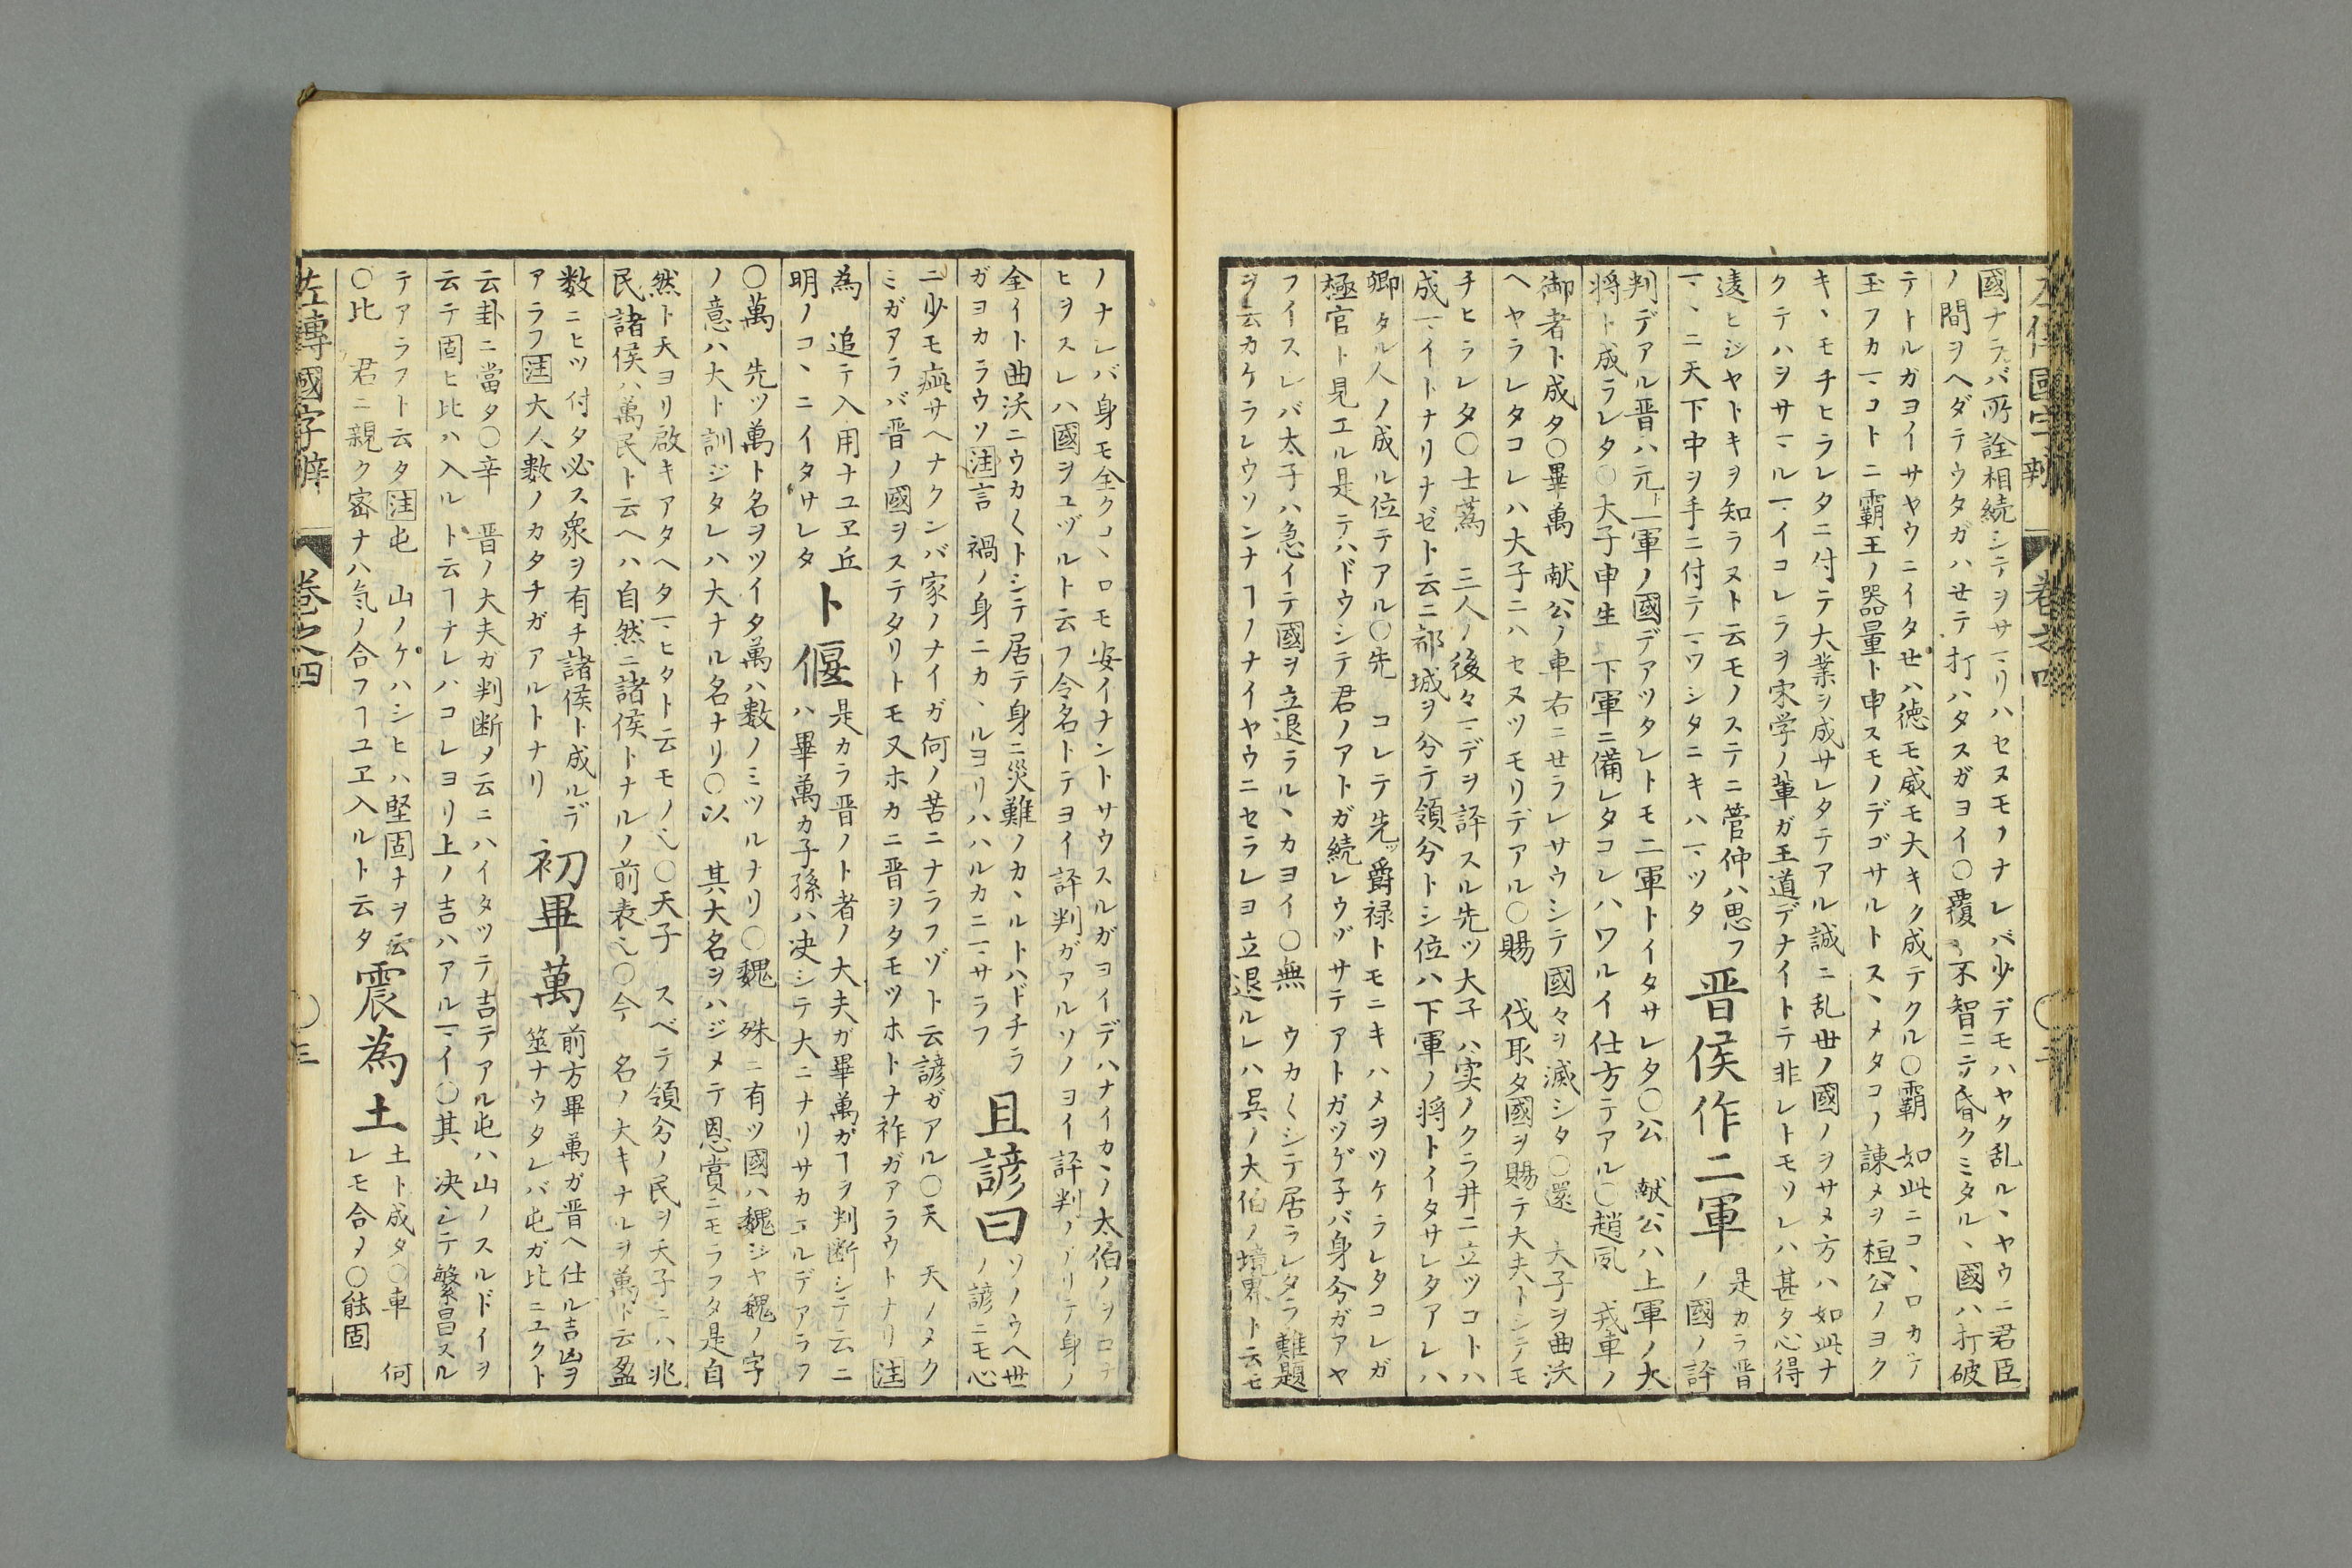 國ナラバ所詮相続シテヲサマリハセヌモノナレバ少デモハヤク乱ル、ヤウニ君臣
ノ間ヲヘダテウタガハせテ打ハタスガヨイ○覆 不智ニテ昏クミタル、國ハ打破
テトルガヨイサヤウニイタせハ徳モ威モ大キク成テクル○霸 如此ニコ、ロカケ
玉フカマコトニ霸王ノ器量ト申スモノデゴサルトス、メタコノ諌メヲ桓公ノヨク
キ、モチヒラレタニ付テ大業ヲ成サレタテアル誠ニ乱世ノ國ノヲサメ方ハ如此ナ
クテハヲサマルマイコレラヲ家学ノ輩ガ王道デナイトテ非レトモソレハ甚タ心得
違ヒジヤトキヲ知ラヌト云モノステニ管仲ハ思フ
マヽニ天下中ヲ手ニ付テマワシタニキハマツタ
晋侯作二軍
是カラ晋
ノ國ノ評
判デアル晋ハ元ト一軍ノ國デアツタレトモ二軍トイタサレタ○公 献公ハ上軍ノ大
将ト成ラレタ○大子申生 下軍ニ備レタコレハワルイ仕方テアル○趙夙 戎車ノ
御者ト成タ○畢萬 献公ノ車右ニせラレサウシテ國々ヲ滅シタ○還 大子ヲ曲沃
ヘヤラレタコレハ大子ニハセヌツモリデアル○賜 伐取タ國ヲ賜テ大夫トシテモ
チヒラレタ○士蒍 三人ノ後々マデヲ評スル先ツ大子ハ実ノクラ井ニ立ツコトハ
成マイトナリナゼト云ニ都城ヲ分テ領分トシ位ハ下軍ノ将トイタサレタアレハ
卿タル人ノ成ル位テアル○先 コレテ先ッ爵禄トモニキハメヲツケラレタコレガ
極官ト見エル是テハドウシテ君ノアトガ続レウゾサテアトガツゲ子バ身分ガアヤ
フイスレバ太子ハ急イテ國ヲ立退ラル、カヨイ○無 ウカ〱シテ居ラレタラ難題
ヲ云カケラレウソンナヿノナイヤウニセラレヨ立退ルレハ呉ノ大伯ノ境界ト云モ
ノナレバ身モ全クコ、ロモ安イナントサウスルガヨイデハナイカ、ノ太伯ノヲロ
ヒヲスレハ國ヲユヅルト云フ令名トテヨイ評判ガアルソノヨイ評判ノアリテ身ノ
全イト曲沃ニウカ〱トシテ居テ身ニ災難ノカ、ルトハドチラ
ガヨカラウソ注言 禍ノ身ニカ、ルヨリハハルカニマサラフ
且諺曰
ソノウヘ世
ノ諺ニモ心
ニ少モ疵サヘナクンバ家ノナイガ何ノ苦ニナラフゾト云諺ガアル○天 天ノメク
ミガアラバ晋ノ國ヲステタリトモ又ホカニ晋ヲタモツホトナ祚ガアラウトナリ注
為 追テ入用ナユヱ丘
明ノコ、ニイタサレタ
卜偃
是カラ晋ノト者ノ大夫ガ畢萬ガヿヲ判断シテ云ニ
ハ畢萬カ子孫ハ决シテ大ニナリサカエルデアラフ
○萬 先ツ萬ト名ヲツイタ萬ハ数ノミツルナリ○魏 殊ニ有ツ國ハ魏ジヤ魏ノ字
ノ意ハ大ト訓ジタレハ大ナル名ナリ○以 其大名ヲハジメテ恩賞ニモラフタ是自
然ト天ヨリ啟キアタヘタマヒタト云モノ也○天子 スベテ領分ノ民ヲ天子ニハ兆
民諸侯ハ萬民ト云ヘハ自然ニ諸侯トナルノ前表也○今 名ノ大キナルヲ萬ト云盈
数ニヒツ付タ必ス衆ヲ有チ諸侯ト成ルデ
アラフ注大人数ノカタチガアルトナリ
初畢萬
前方畢萬ガ晋ヘ仕ル吉凶ヲ
筮ナウタレバ屯ガ比ニユクト
云卦ニ當タ○辛 晋ノ大夫ガ判断メ云ニハイタツテ吉テアル屯ハ山ノスルドイヲ
云テ固ヒ比ハ入ルト云ヿナレハコレヨリ上ノ吉ハアルマイ○其 决シテ繁昌スル
テアラフト云タ注屯 山ノケハシヒハ堅固ナヲ云
○比 君ニ親ク密ナハ気ノ合フヿユヱ入ルト云タ
震為土
土ト成タ○車 何
レモ合タ○能固
左傳國字辯 巻之四 ○三